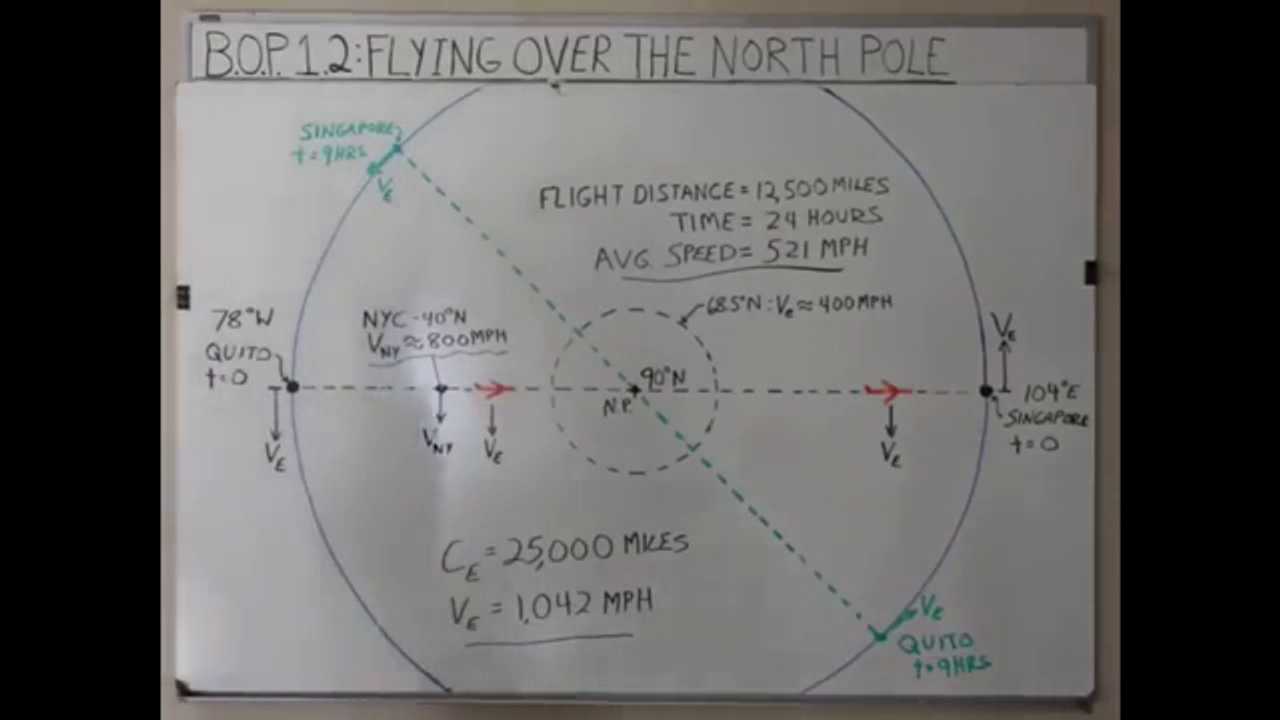 B.O.P. 1.2: FLYING OVER THE NORTH POLE
SINGAPORE
t=9HRS
VE
FLIGHT DISTANCE = 12,500 MILES
TIME = 24 HOURS
AVG. SPEED = 521 MPH
68.5°N : Ve ≈ 400 MPH
78°W
QUITO
t=0
VE
NYC - 40°N
VNY ≈ 800 MPH
VNY
VE
90°N
N.P.
VE
VE
104°E
SINGAPORE
t=0
CE = 25,000 MILES
VE = 1,042 MPH
VE
QUITO
t=9HRS